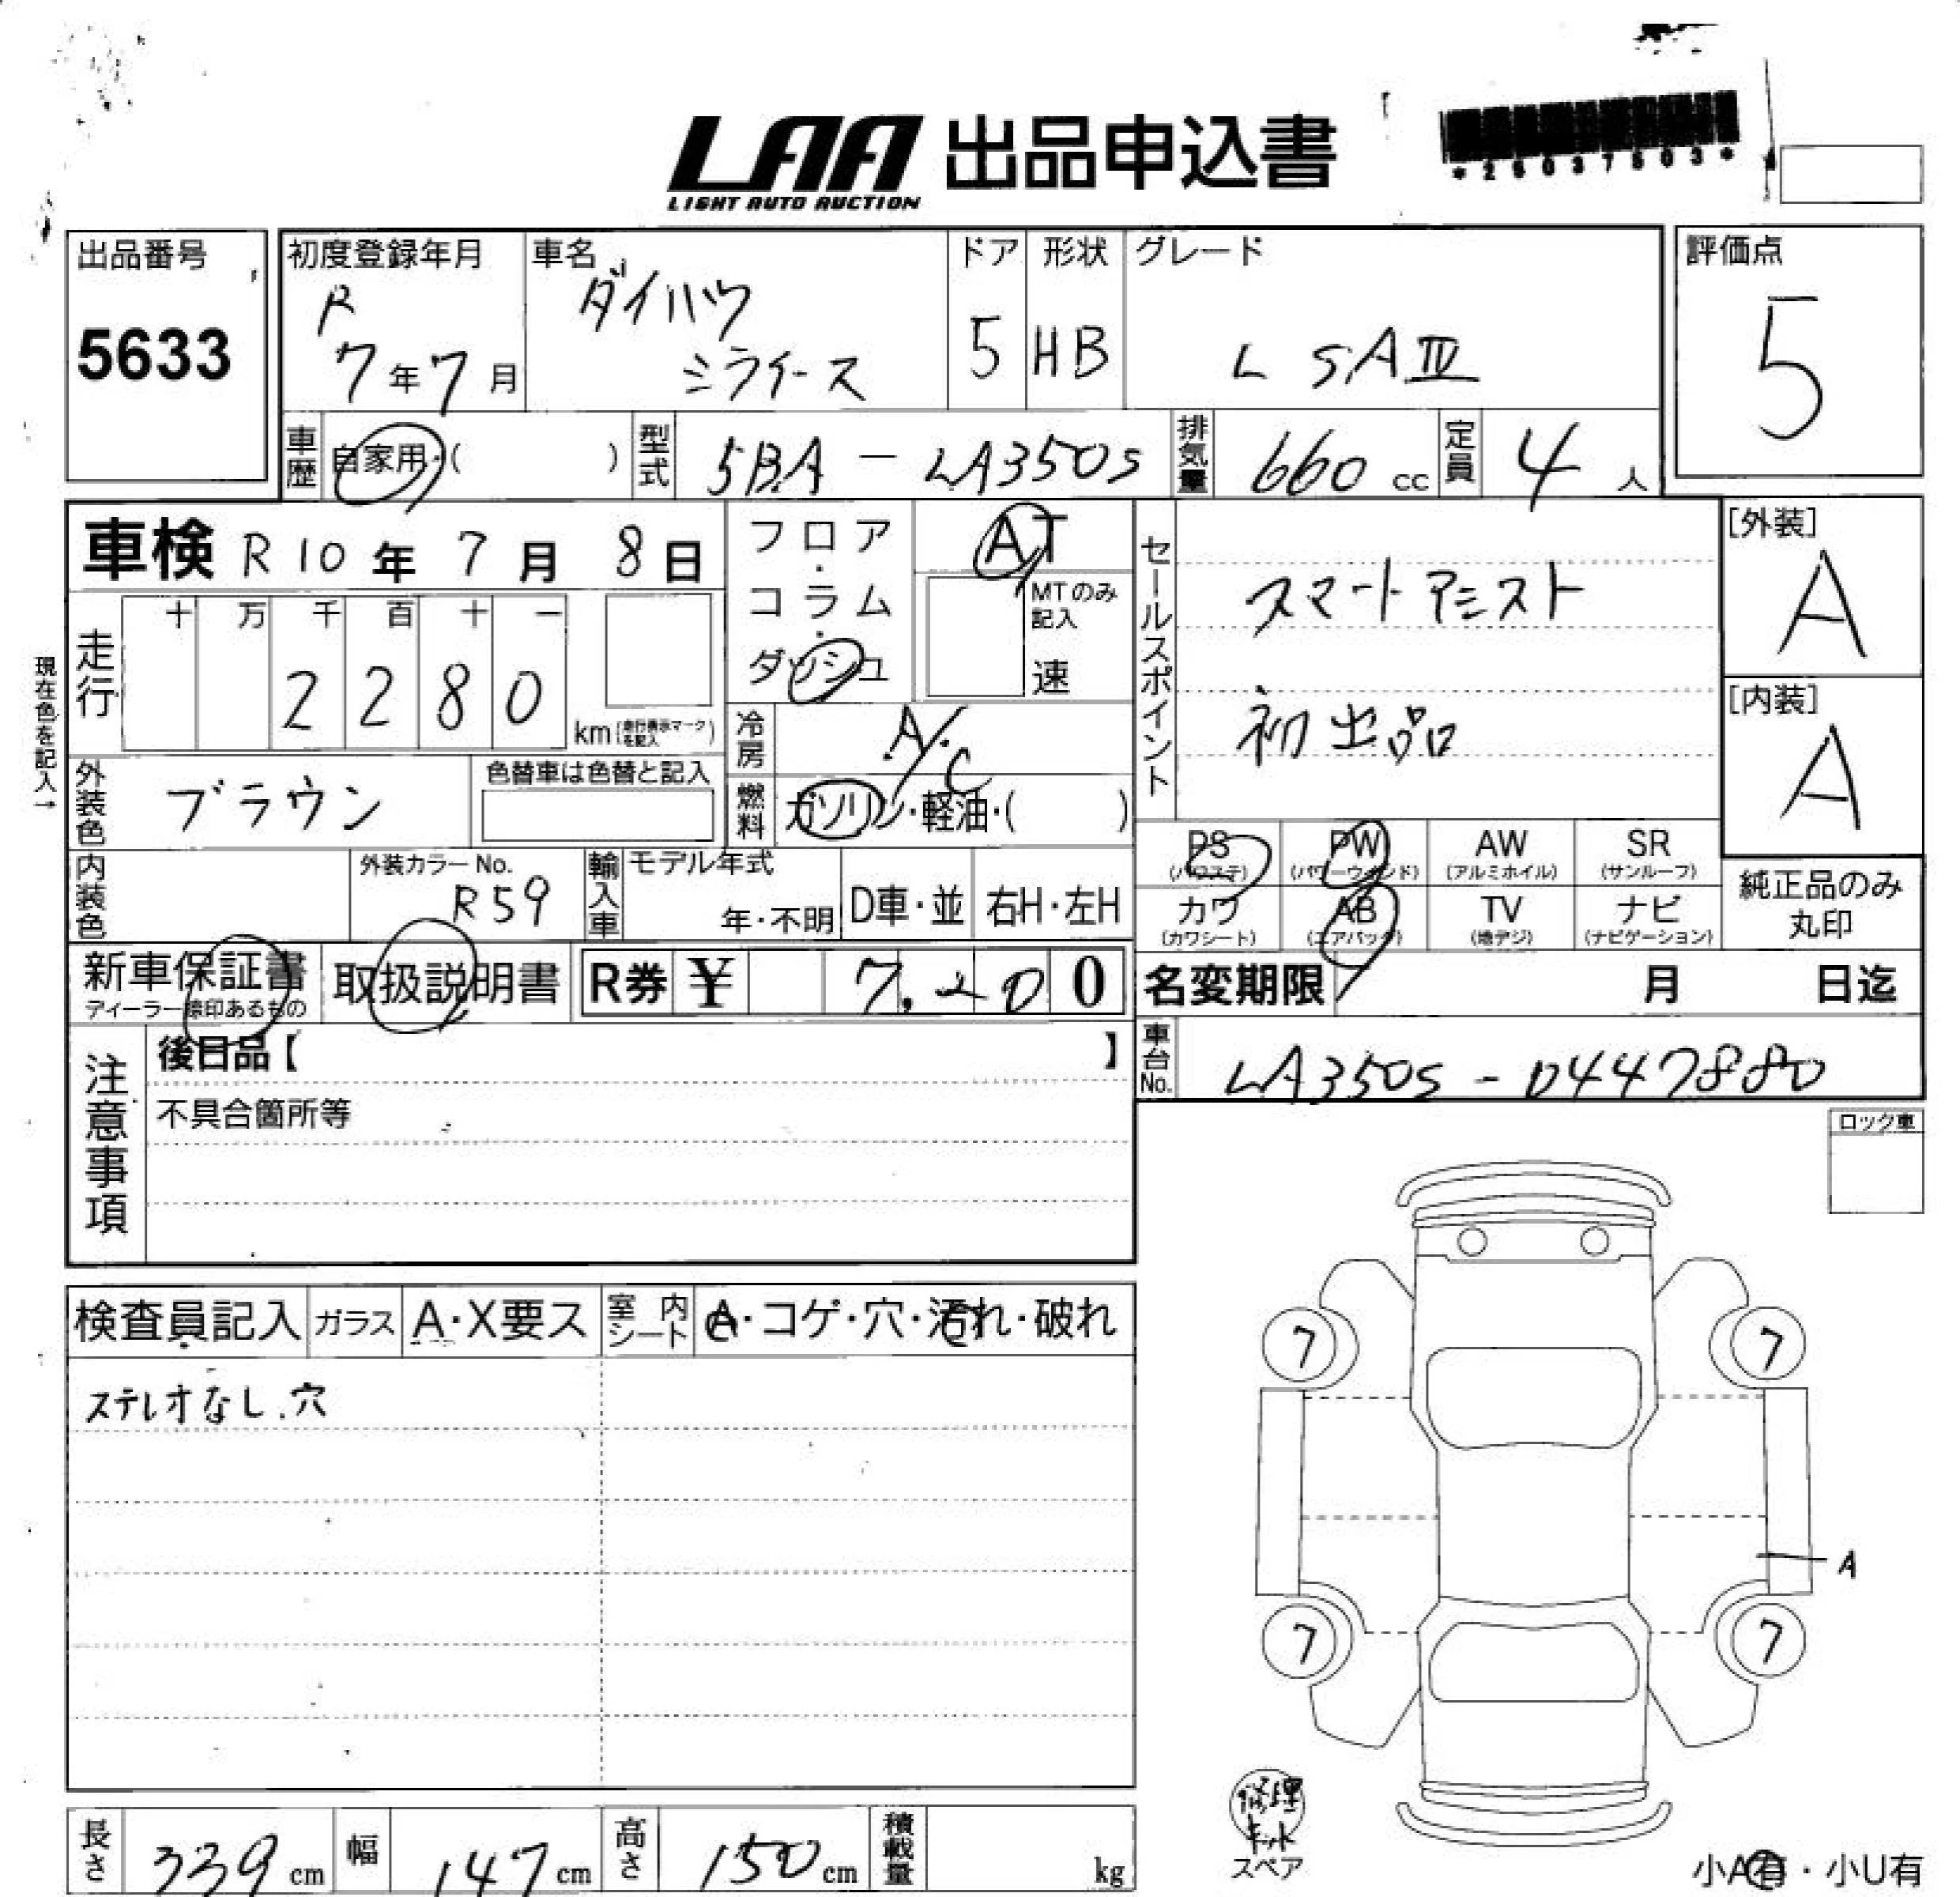 LAA 出品申込書
LIGHT AUTO AUCTION
*26037503*
出品番号
5633
初度登録年月
R
7年7月
車名
ダイハツ
ミライース
ドア
5
形状
HB
グレード
L SAⅣ
評価点
5
車歴
自家用・( )
型式
5BA - LA350S
排気量
660 cc
定員
4 人
車検 R10年 7月 8日
現在色を記入→
走行
十 万 千 百 十 一
2 2 8 0
km(走行表示マークを記入)
フロア・コラム・ダッシュ
AT
MTのみ記入
速
冷房
A/C
燃料
ガソリン・軽油・( )
セールスポイント
スマートアシスト
初出品
[外装]
A
[内装]
A
外装色
ブラウン
色替車は色替と記入
内装色
外装カラーNo.
R59
輸入車
モデル年式
年・不明
D車・並
右H・左H
PS
(パワステ)
PW
(パワーウィンド)
AW
(アルミホイル)
SR
(サンルーフ)
カワ
(カワシート)
AB
(エアバッグ)
TV
(地デジ)
ナビ
(ナビゲーション)
純正品のみ
丸印
新車保証書
ディーラー捺印あるもの
取扱説明書
R券 ¥ 7,200
名変期限 月 日迄
車台No.
LA350S - 0447880
注意事項
後日品【 】
不具合箇所等
ロック車
検査員記入
ガラス
A・X要ス
室内シート
A・コゲ・穴・汚れ・破れ
ステレオなし.穴
7
7
A
7
7
修理
キット
スペア
小A有・小U有
長さ
339 cm
幅
147 cm
高さ
150 cm
積載量
kg